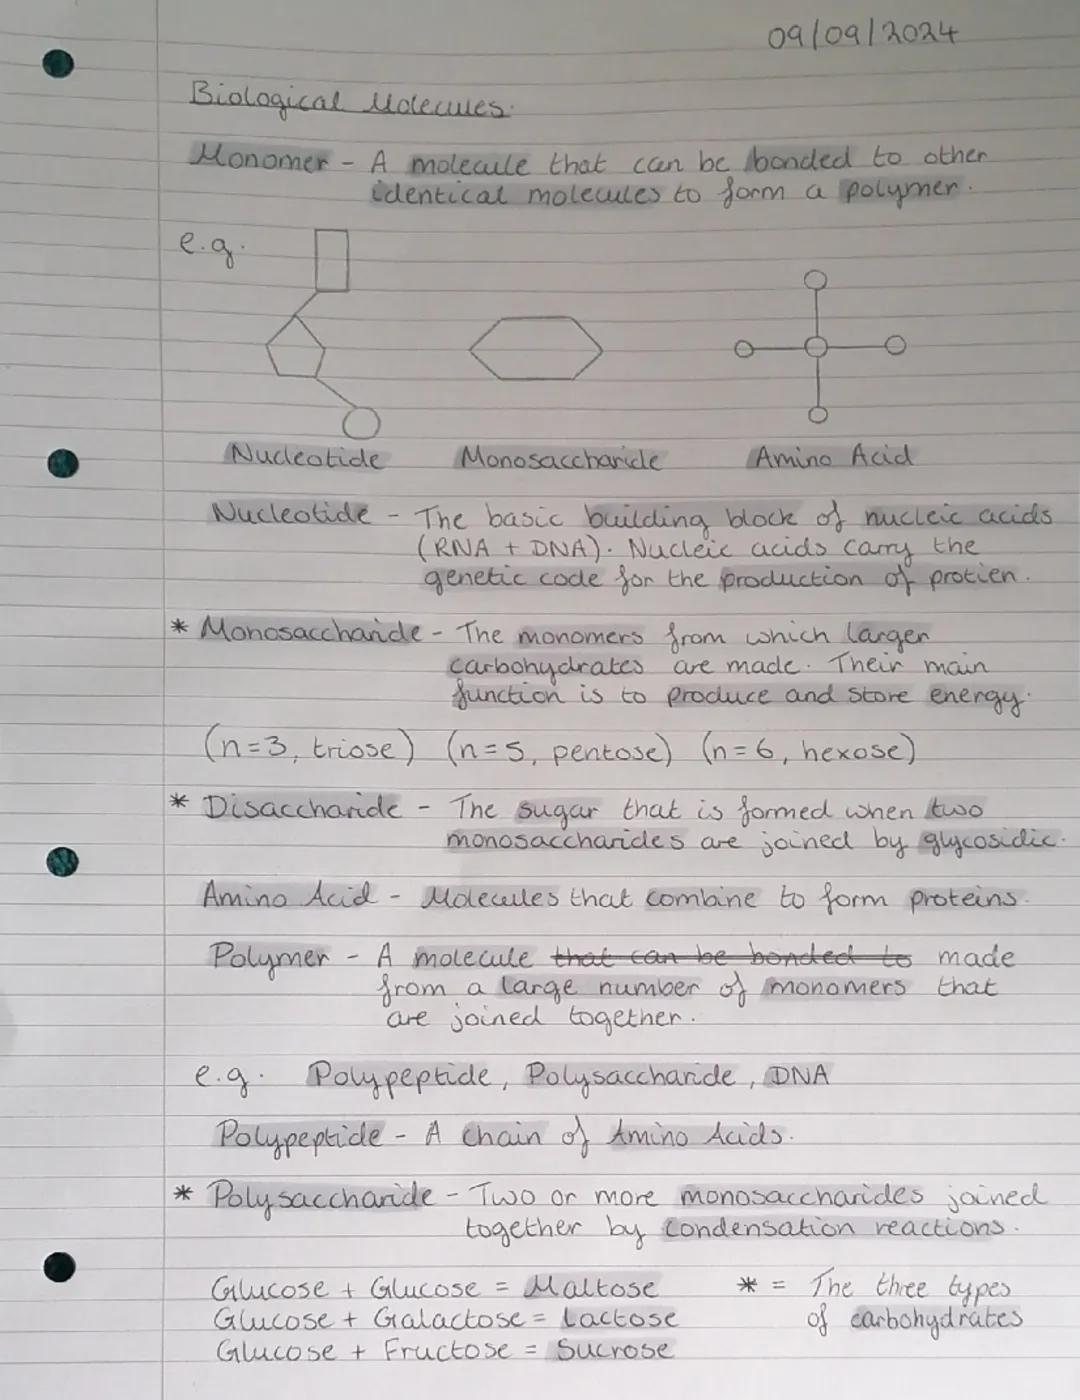 09/09/2024
Biological Molecules.
Monomer - A molecule that can be bonded to other
identical molecules to form a polymer.
e.g.
Nucleotide Monosaccharide Amino Acid
Nucleotide - The basic building block of nucleic acids
(RNA + DNA). Nucleic acids carry the
genetic code for the production of protien.
* Monosaccharide - The monomers from which larger
carbohydrates are made. Their main
function is to produce and store energy.
(n=3, triose) (n=5, pentose) (n=6, hexose)
* Disaccharide - The sugar that is formed when two
monosaccharides are joined by glycosidic.
Amino Acid - Molecules that combine to form proteins.
Polymer - A molecule that can be bonded to made
from a large number of monomers that
are joined together.
e.g. Polypeptide, Polysaccharide, DNA
Polypeptide - A chain of Amino Acids.
* Polysaccharide - Two or more monosaccharides joined
together by condensation reactions.
Glucose + Glucose = Maltose
Glucose + Galactose = Lactose
Glucose + Fructose = Sucrose
* = The three types
of carbohydrates